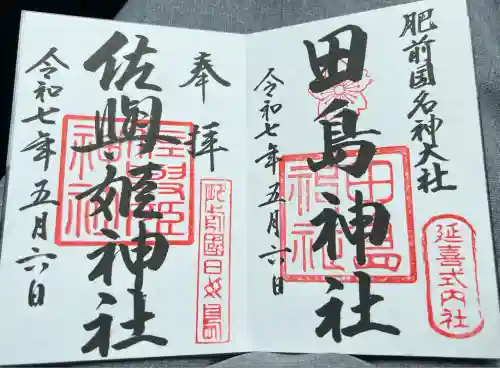 肥前国名神大社
田島神社
延喜式内社
令和七年五月六日
奉拝
佐與姫神社
令和七年五月六日